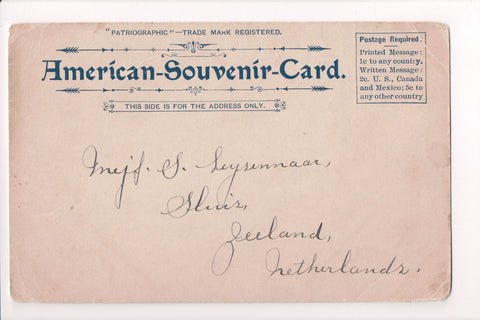 "PATRIOGRAPHIC"—TRADE MARK REGISTERED.
American-Souvenir-Card.
THIS SIDE IS FOR THE ADDRESS ONLY.
Postage Required.
Printed Message:
1c to any country.
Written Message:
2c. U. S., Canada
and Mexico; 5c to
any other country
Mejf. S. Leysennaar,
Sluis,
Zeeland,
Netherlands.